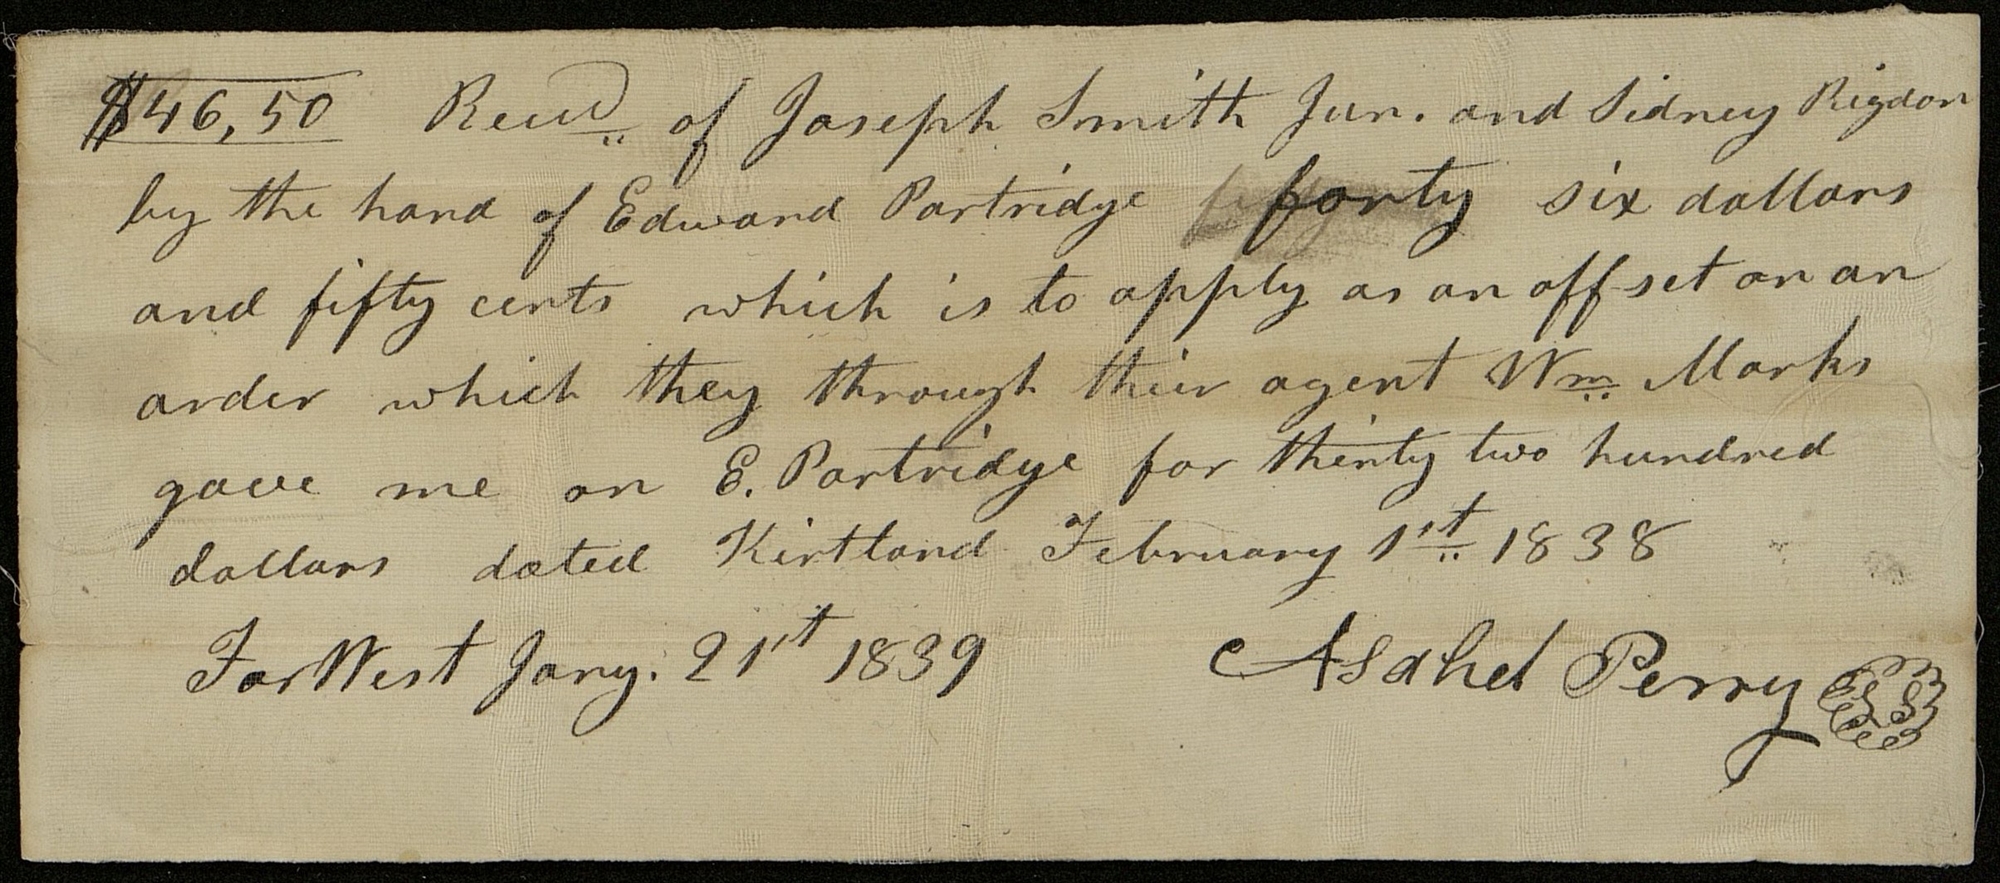 $46,50 Recd of Joseph Smith Jun. and Sidney Rigdon
by the hand of Edward Partridge forty six dollars
and fifty cents which is to apply as an off set on an
order which they through their agent Wm Marks
gave me on E. Partridge for thirty two hundred
dollars dated Kirtland February 1st 1838
Far West Jany. 21st 1839 Asahel Perry